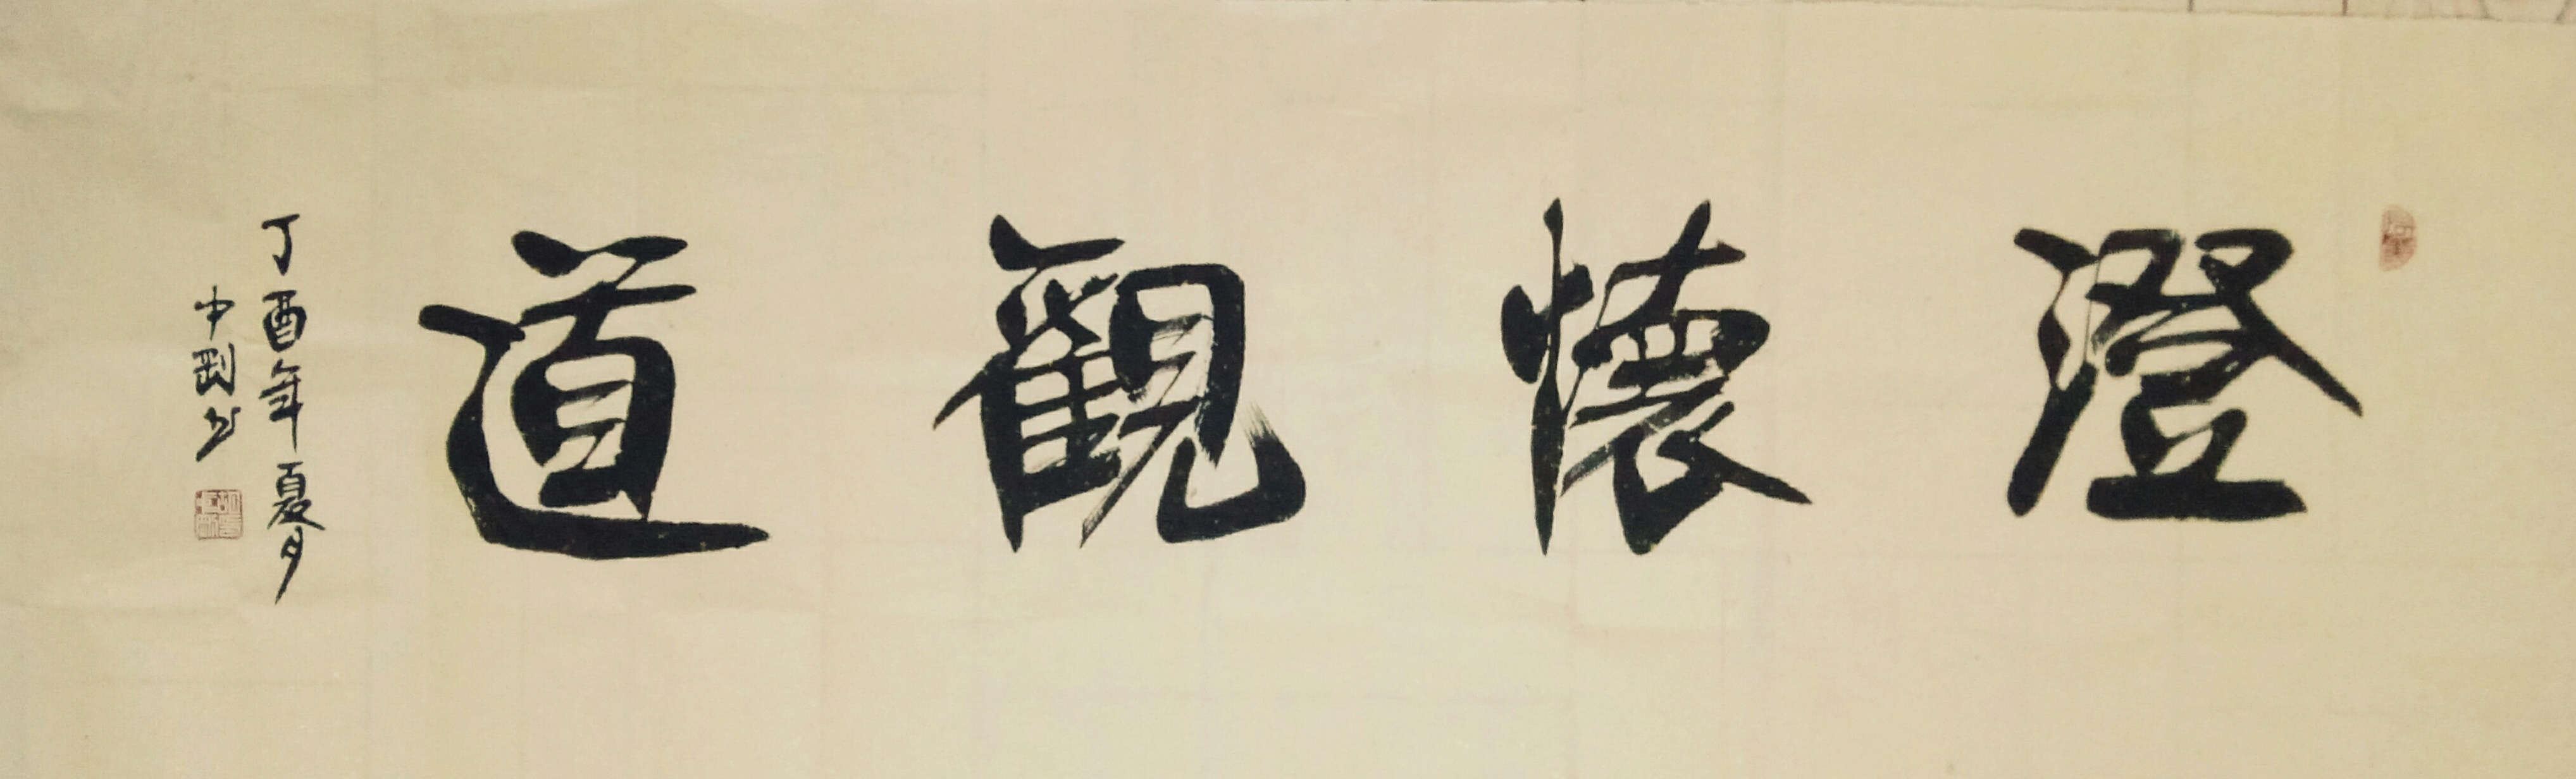 澄懷觀道
丁酉年夏月
中剛书